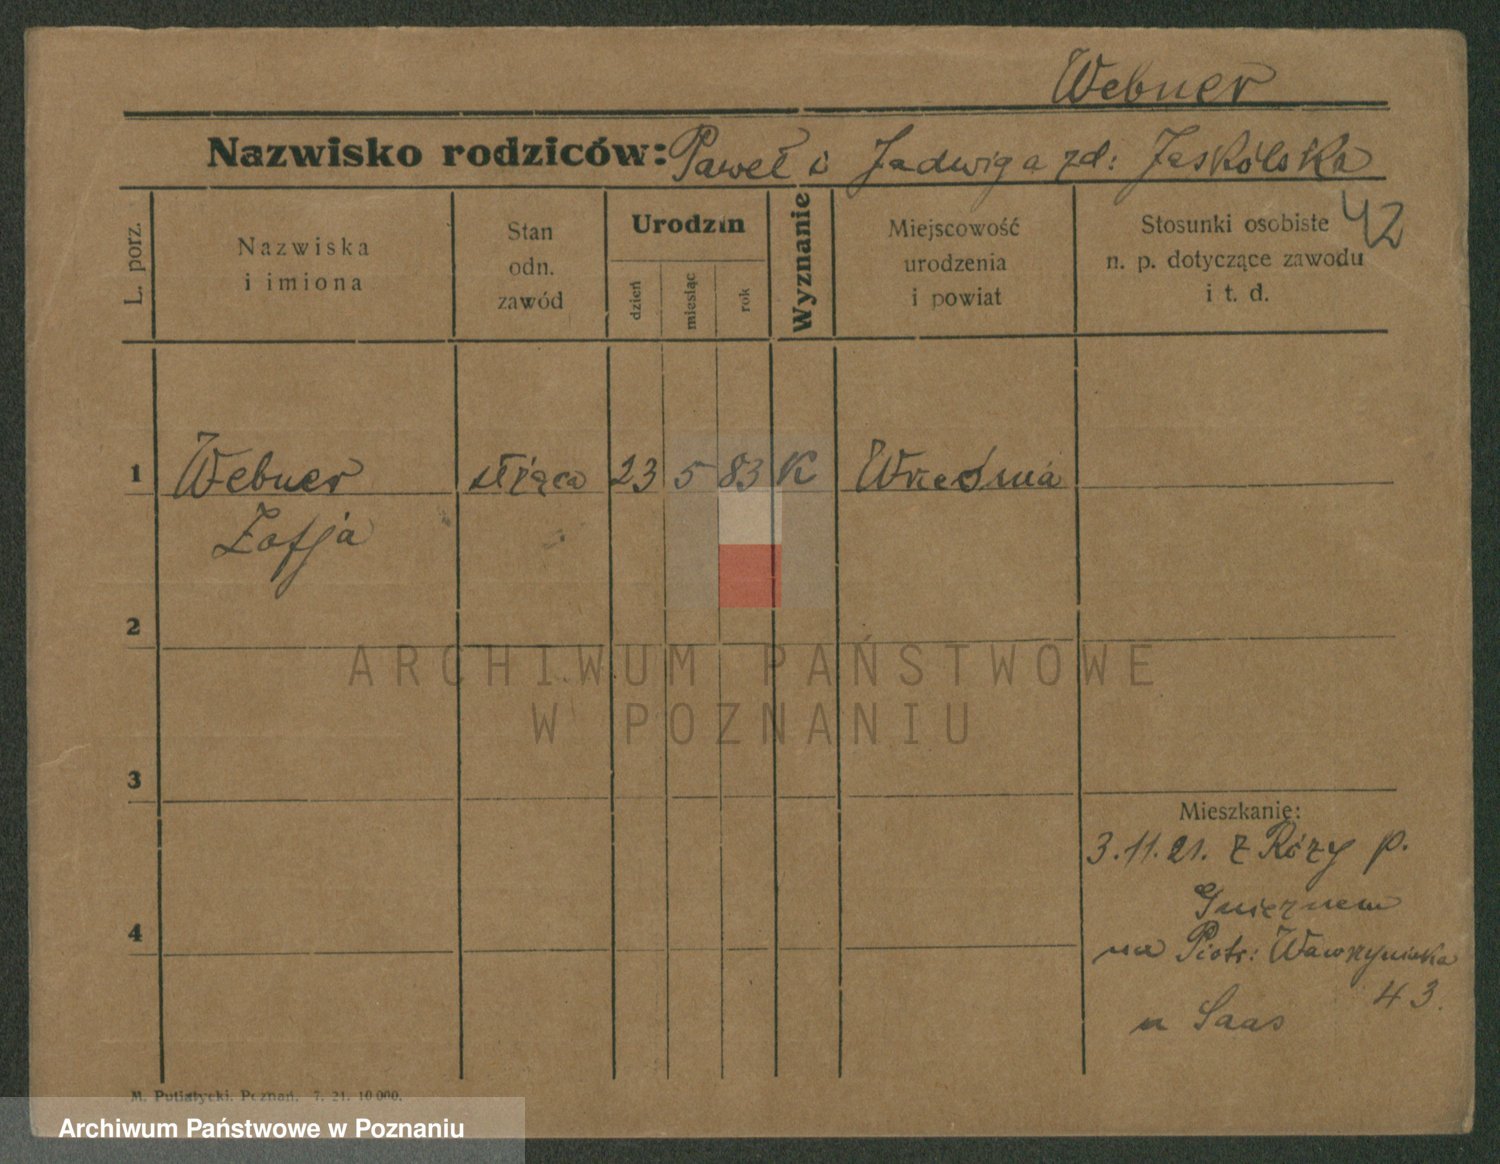 Webner
Nazwisko rodziców: Paweł i Jadwiga zd: Jaskólska
42
L. porz.
Nazwiska
i imiona
Stan
odn.
zawód
Urodzin
dzień
miesiąc
rok
Wyznanie
Miejscowość
urodzenia
i powiat
Stosunki osobiste
n. p. dotyczące zawodu
i t. d.
1 Webner służąca 23 5 83 K Września
Zofja
2
ARCHIWUM PAŃSTWOWE
W POZNANIU
3
Mieszkanie:
3.11.21. z Róży p.
Gnieznem
4
na Piotr: Wawrzyniaka
43.
u Saas
M. Putiatycki, Poznań. 7. 21. 10 000.
Archiwum Państwowe w Poznaniu